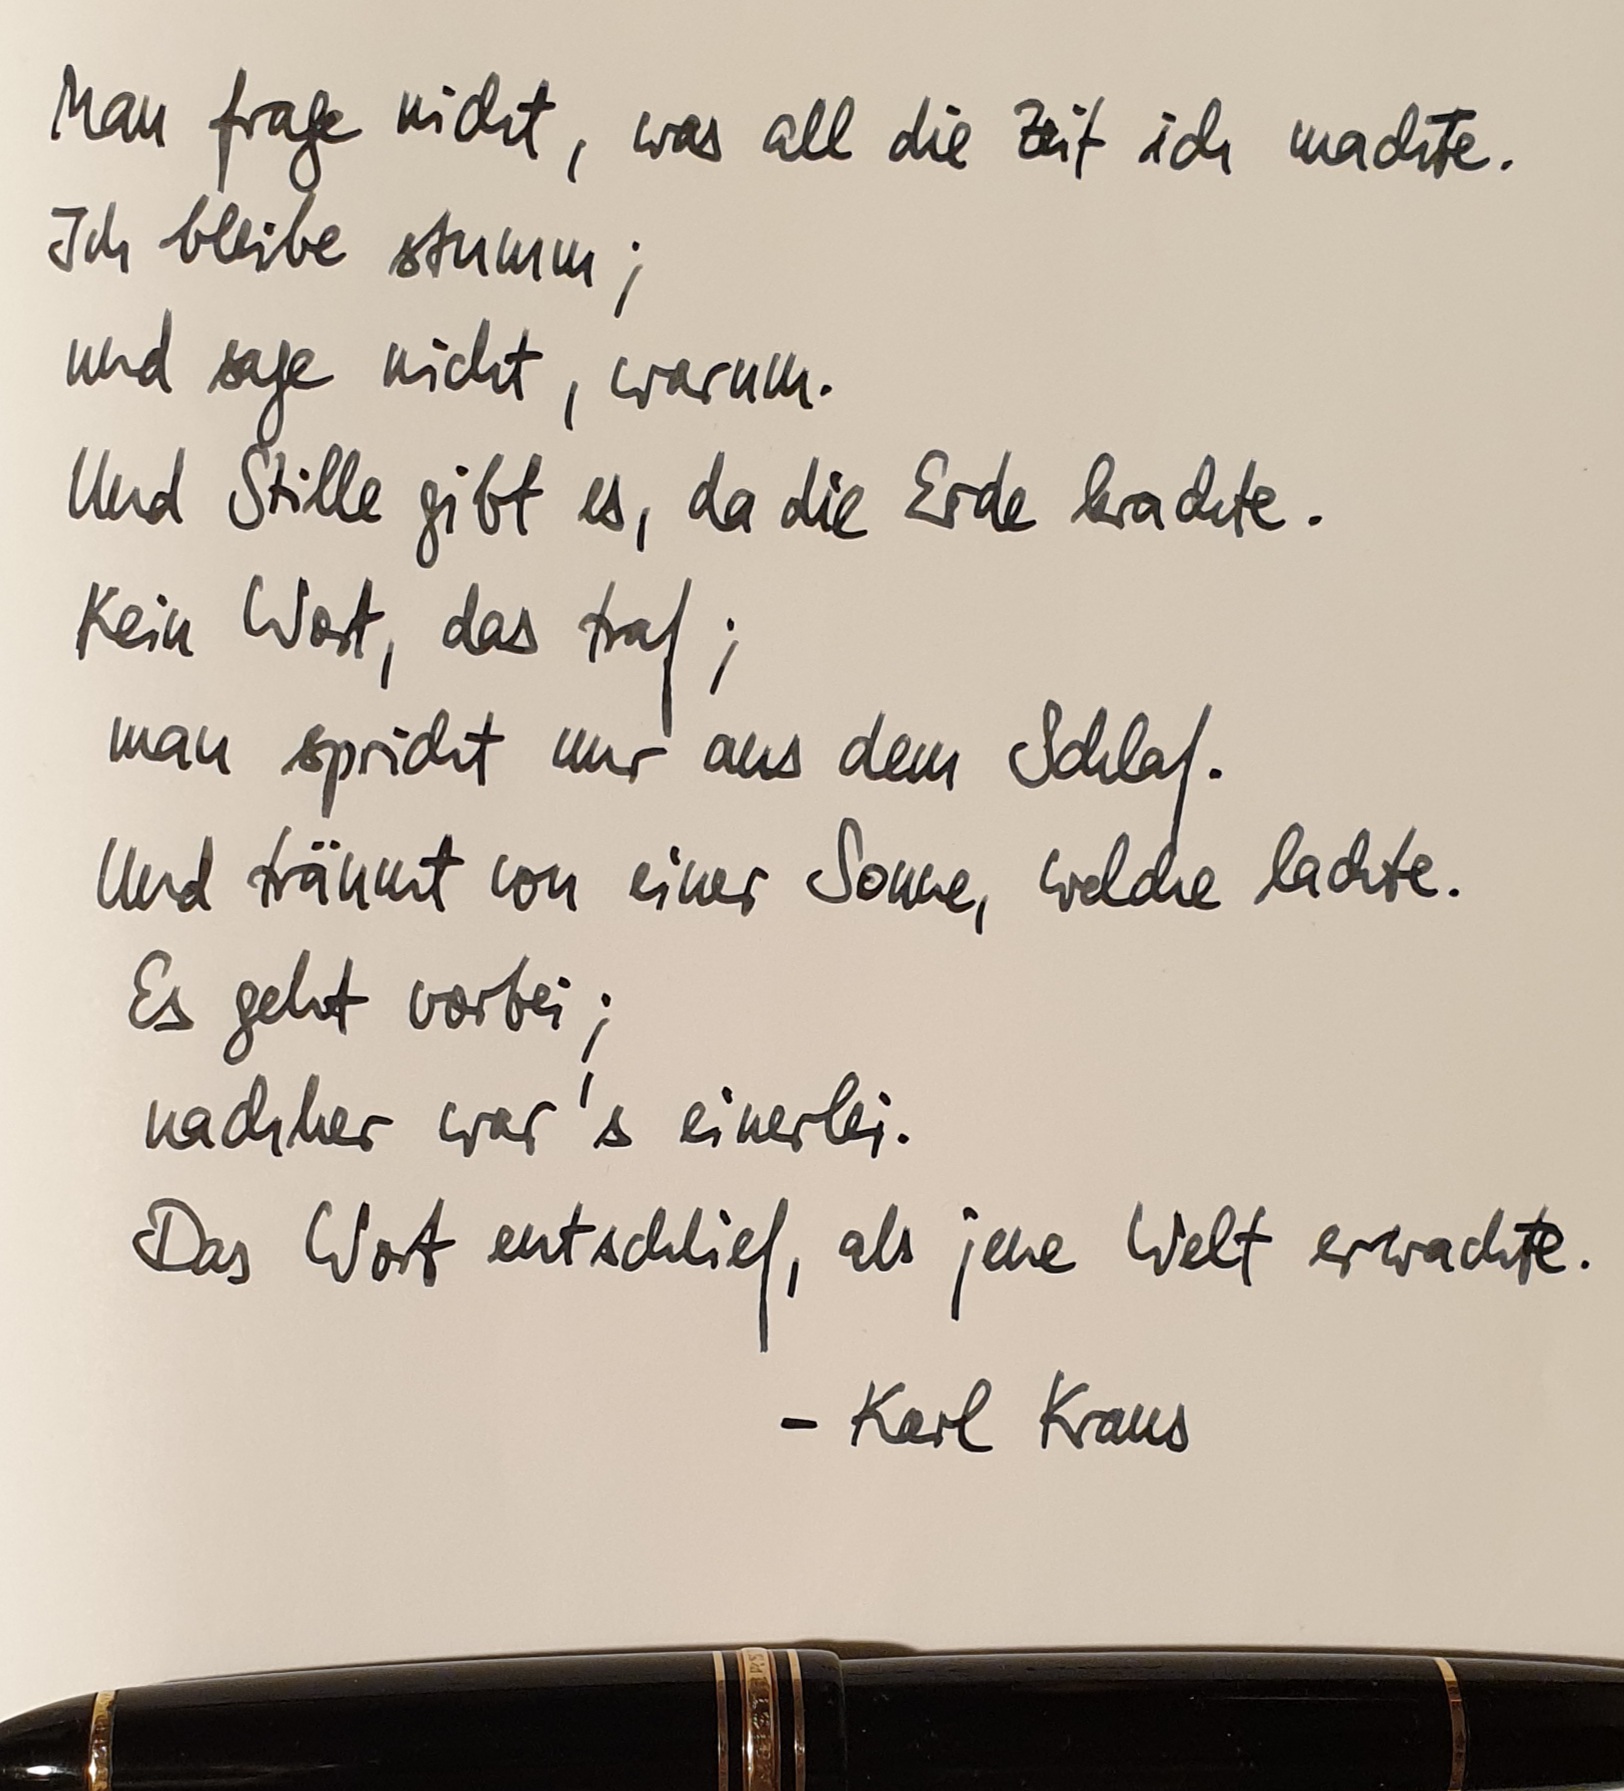 Man frage nicht, was all die Zeit ich machte.
Ich bleibe stumm;
und sage nicht, warum.
Und Stille gibt es, da die Erde krachte.
Kein Wort, das traf;
man spricht nur aus dem Schlaf.
Und träumt von einer Sonne, welche lachte.
Es geht vorbei;
nachher war's einerlei.
Das Wort entschlief, als jene Welt erwachte.
- Karl Kraus